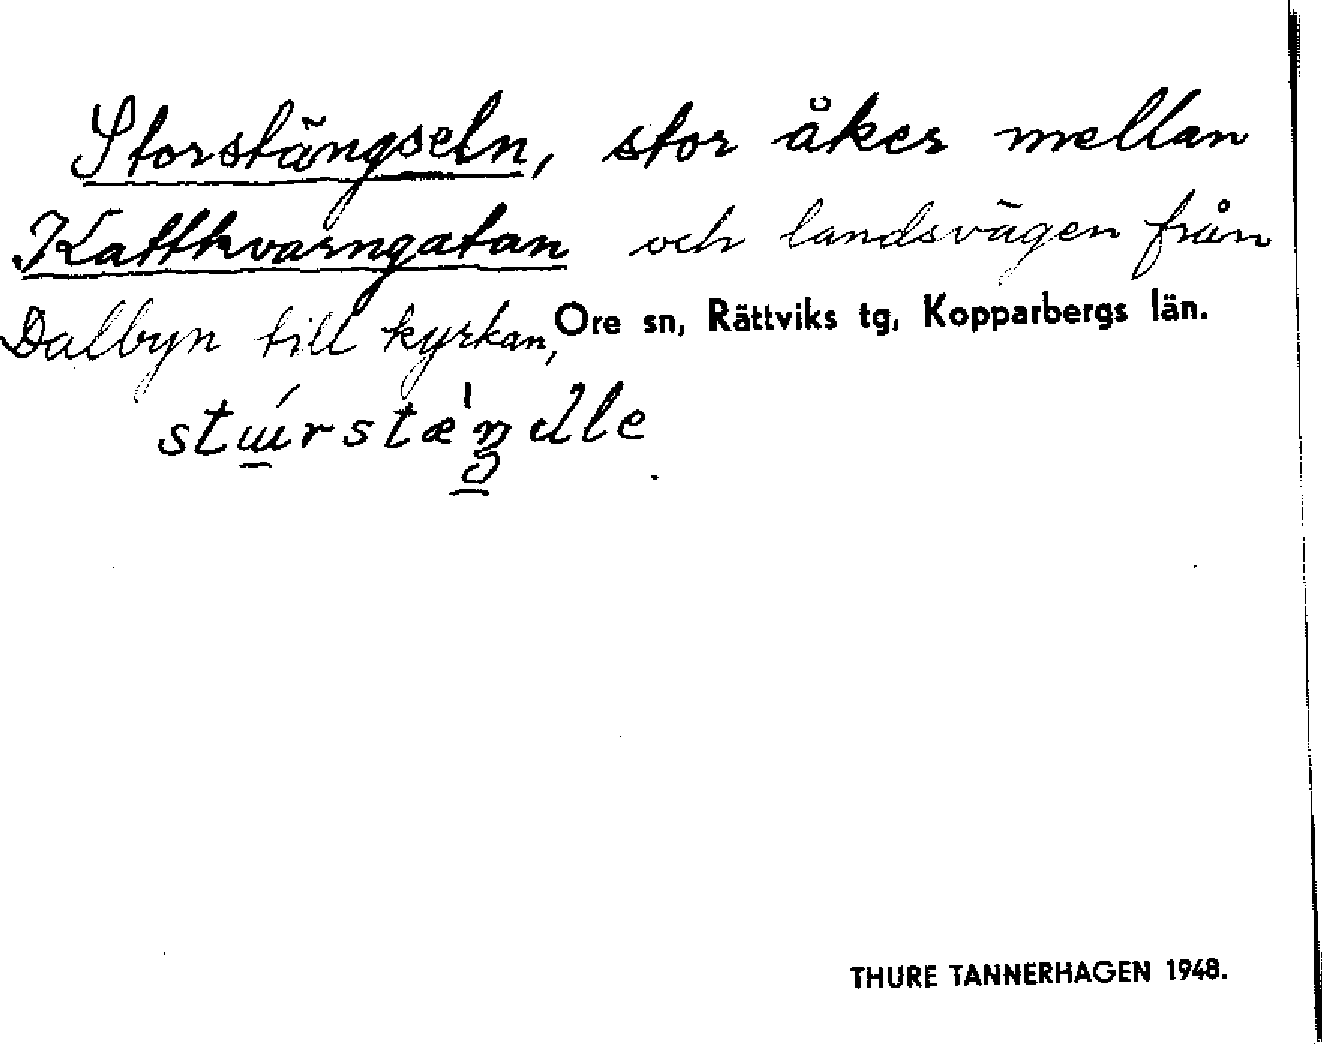 Storstängseln, stor åker mellan
Kattkvarngatan och landsvägen från
Dalbyn till kyrkan, Ore sn, Rättviks tg, Kopparbergs län.
THURE TANNERHAGEN 1948.